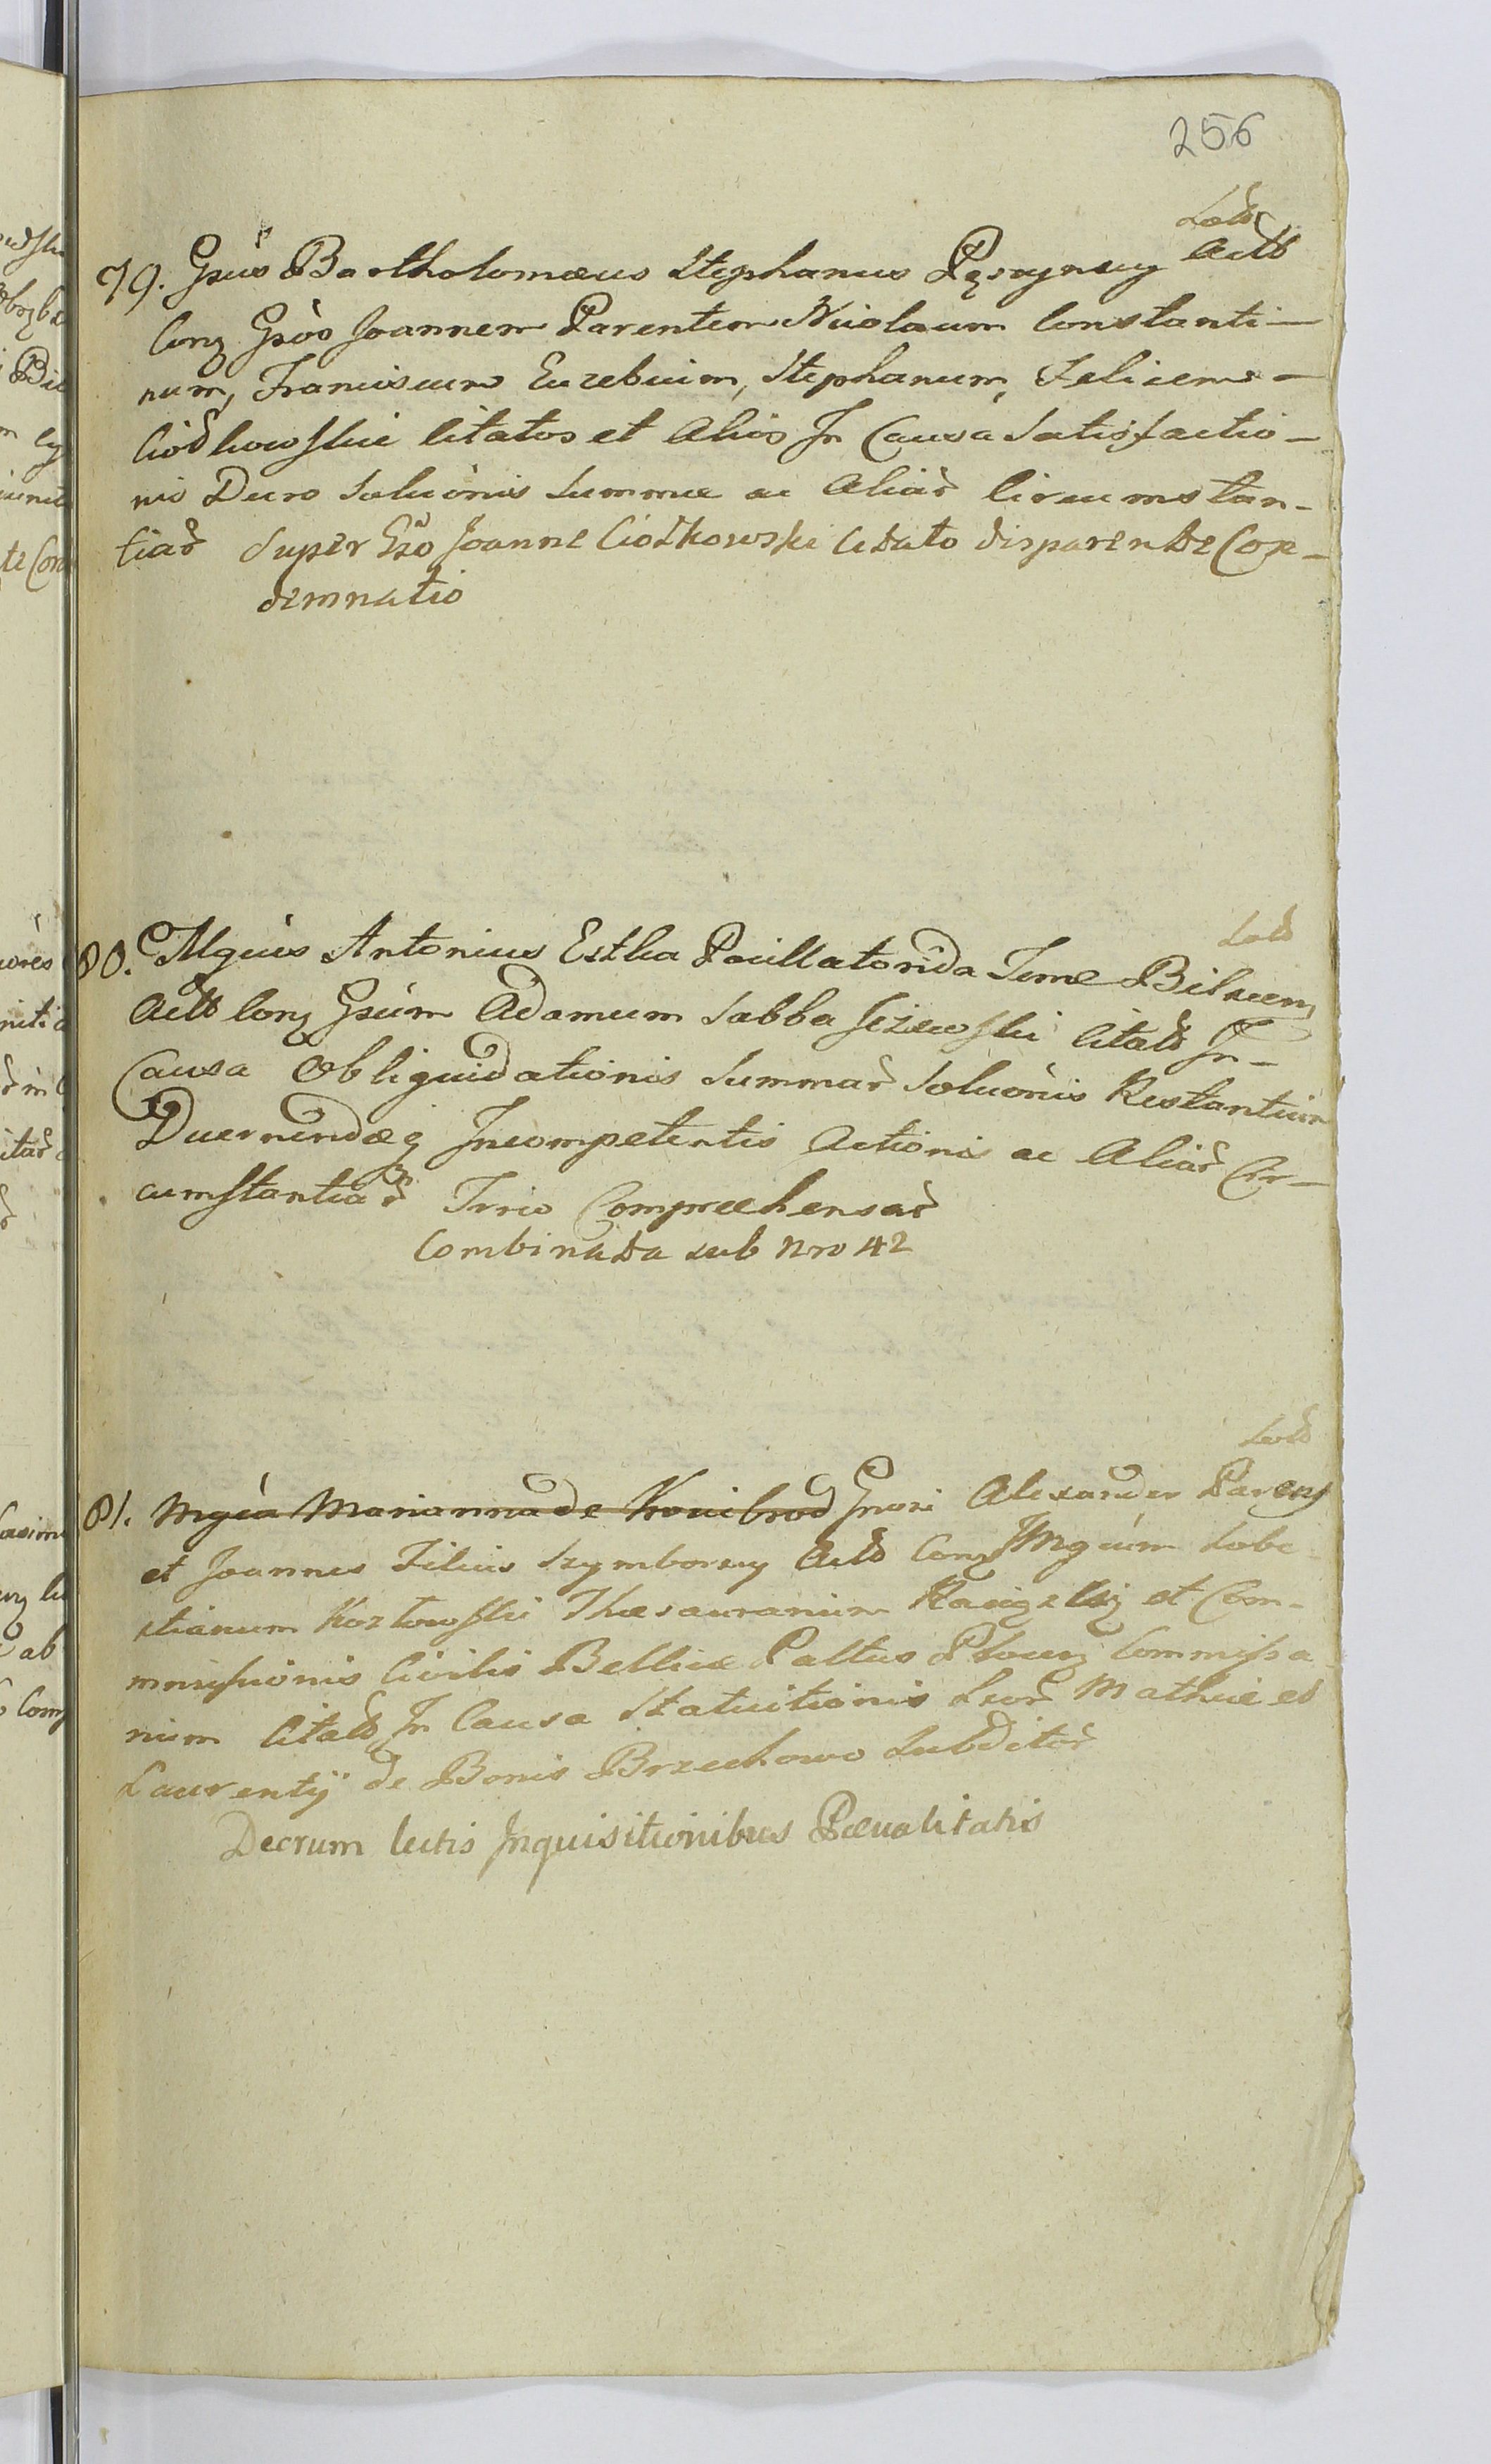 256
Lectt
79. Gsus Bartholomæus Stephanus Pęsczyńscy Actt
Conz Gsos Joannem Parentem Nicolaum Constanti-
num, Franciscum Euzebium, Stephanum, Felicem -
Ciołkowskie Citatos et Alios In Causa Satisfactio-
nis Decro Soluonis Summæ ac Aliar Circumstan-
tiar Super Gso Joanne Ciołkowski Citato disparente Con-
demnatio
Lectt
80. Mgcus Antonius Estka Pocillatorida Terræ Bilscen
Actt Conz Gsum Adamum Sabba Citatt In -
Causa Obliquidationis Summar Soluonis Restantium
Decernendæq Incompetentis Actionis ac Aliar Cir-
cumstantiar Trrio Compræhensar
Combinata sub Nro 42
Lectt
81. Mgca Marianna de Gnosi Alexander Parens
et Joannes Filius Szymborscy Actt Conz Mgcum Seba-
stianum Kozłowski Thesaurarium et Com-
missionis Civilis Bellicæ Pallus Plocen Commissa
rium Citatt In Causa Statuitionis Lror Mathiæ et
Laurentij de Bonis Brzechowo Subditor
Decrum lectis Inquisitionibus